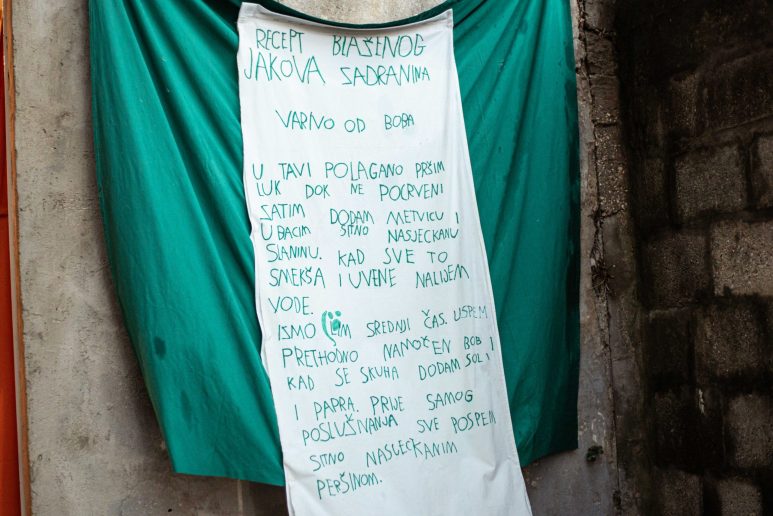 RECEPT BLAŽENOG
JAKOVA ZADRANINA
VARNO OD BOBA
U TAVI POLAGANO PRŠIM
LUK DOK NE POCRVENI
ZATIM DODAM METVICU I
UBACIM SITNO NASJECKANU
SLANINU. KAD SVE TO
SMEKŠA I UVENE NALIJEM
VODE.
SREDNJI ČAS. USPEM
PRETHODNO NAMOČEN BOB I
KAD SE SKUHA DODAM SOLI
I PAPRA. PRIJE SAMOG
POSLUŽIVANJA SVE POSPEM
SITNO NASJECKANIM
PERŠINOM.